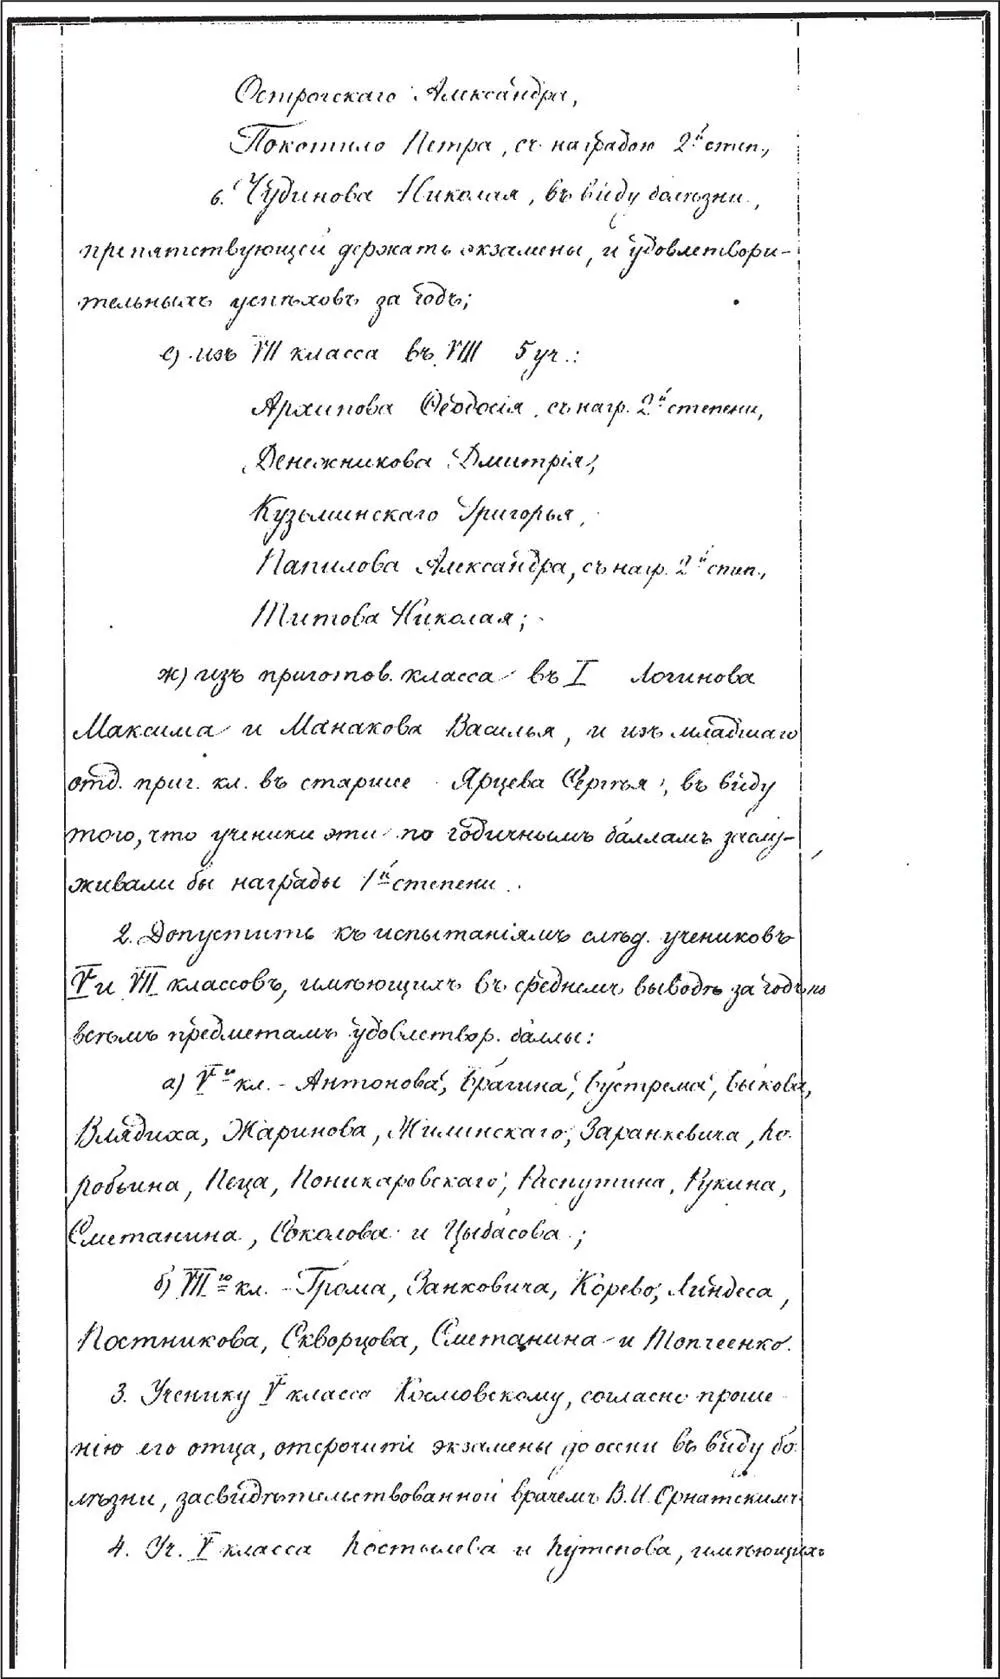 Острогскаго Александра,
Покотило Петра, съ наградою 2й степ.,
6. Чудинова Николая, въ виду болѣзни,
препятствующей держать экзамены, и удовлетвори-
тельныхъ успѣховъ за годъ;
е) изъ VII класса въ VIII 5 уч.:
Архипова Ѳеодосія, съ нагр. 2й степени,
Денежникова Дмитрія,
Кузьминскаго Григорья,
Папилова Александра, съ нагр. 2й степ.,
Титова Николая;
ж) изъ приготов. класса въ I Логинова
Максима и Манакова Василья, и изъ младшаго
отд. приг. кл. въ старшее Ярцева Сергѣя, въ виду
того, что ученики эти по годичнымъ балламъ заслу-
живали бы награды 1й степени.
2. Допустить къ испытаніямъ слѣд. учениковъ
V и VII классовъ, имѣющихъ въ среднемъ выводѣ за годъ по
всѣмъ предметамъ удовлетвор. баллы:
а) Vго кл. - Антонова, Брагина, Бустрема, Быкова,
Влядиха, Жаринова, Жилинскаго, Заранкевича, Ко-
робьина, Пеца, Поникаровскаго, Распутина, Рукина,
Сметанина, Соколова и Цыбасова;
б) VIIго кл. - Грома, Занковича, Корево, Линдеса,
Постникова, Скворцова, Сметанина и Топчеенко.
3. Ученику V класса согласно проше-
нію его отца, отсрочить экзамены до осени въ виду бо-
лѣзни, засвидѣтельствованной врачемъ В. И. Орнатскимъ
4. Уч. V класса Костылева и Кутепова, имѣющихъ